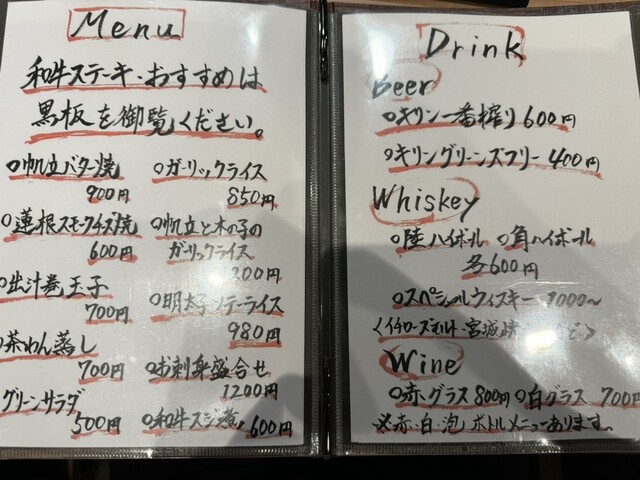 Menu
和牛ステーキ・おすすめは
黒板を御覧ください。
○帆立バター焼
900円
○蓮根スモークチーズ焼
600円
○出汁巻玉子
700円
○茶わん蒸し
700円
グリーンサラダ
500円
○ガーリックライス
850円
○帆立と木の子の
ガーリックライス
200円
○明太子ソテーライス
980円
○お刺身盛合せ
1200円
○和牛スジ煮
600円
Drink
Beer
○キリン一番搾り 600円
○キリングリーンズフリー 400円
Whiskey
○陸ハイボール ○角ハイボール
各600円
○スペシャルウィスキー 1000〜
<イチローズモルト・宮城峡 など>
Wine
○赤グラス 800円 ○白グラス 700円
※赤・白・泡 ボトルメニューあります。